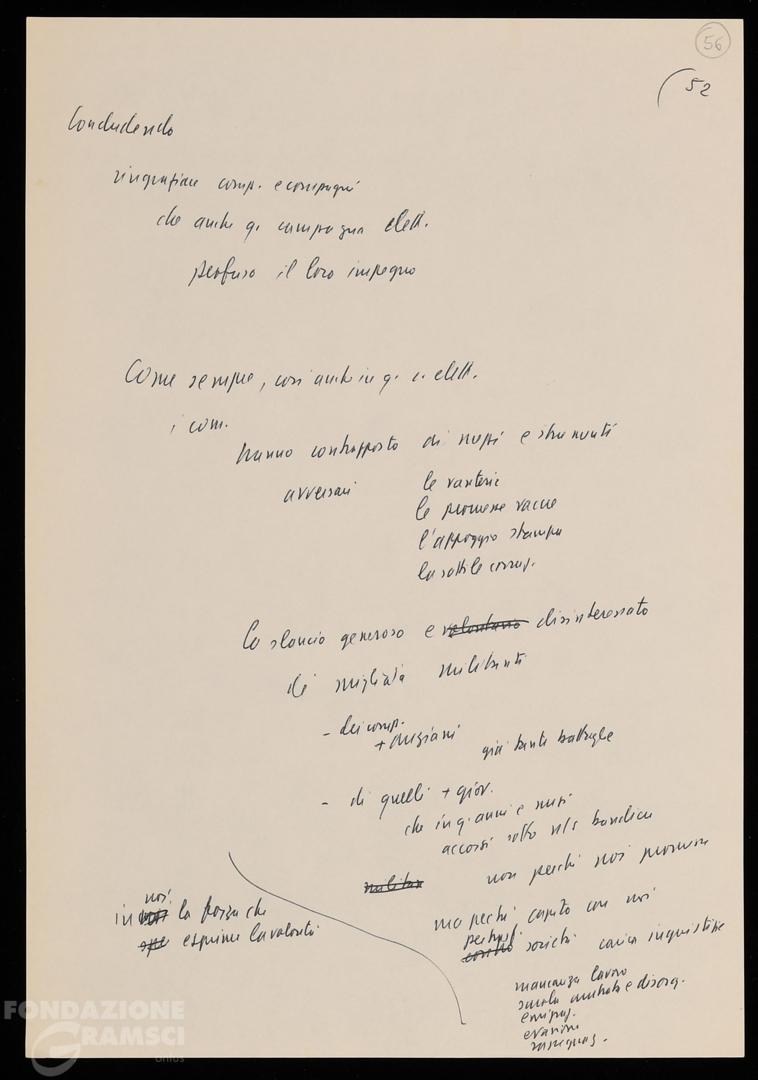 56
52
Concludendo
ringraziare comp. e compagni
che anche q. campagna elett.
profuso il loro impegno
Come sempre, così anche in q. c. elett.
i com.
hanno contrapposto di mezzi e strumenti
avversari le vanterie
le promesse vacue
l'appoggio stampa
la sottile corruz.
lo slancio generoso e volontario disinteressato
di migliaia militanti
- dei comp.
+ anziani già tante battaglie
- di quelli + giov.
che in q. anni e mesi
accorsi sotto ns/ bandiera
non perché noi promesse
ma perché capito con noi
società carica ingiustizie
mancanza lavoro
scuola e disorg.
emigraz.
evasione
rassegnaz.
noi
in la forza che
esprime la volontà
FONDAZIONE
GRAMSCI
onlus